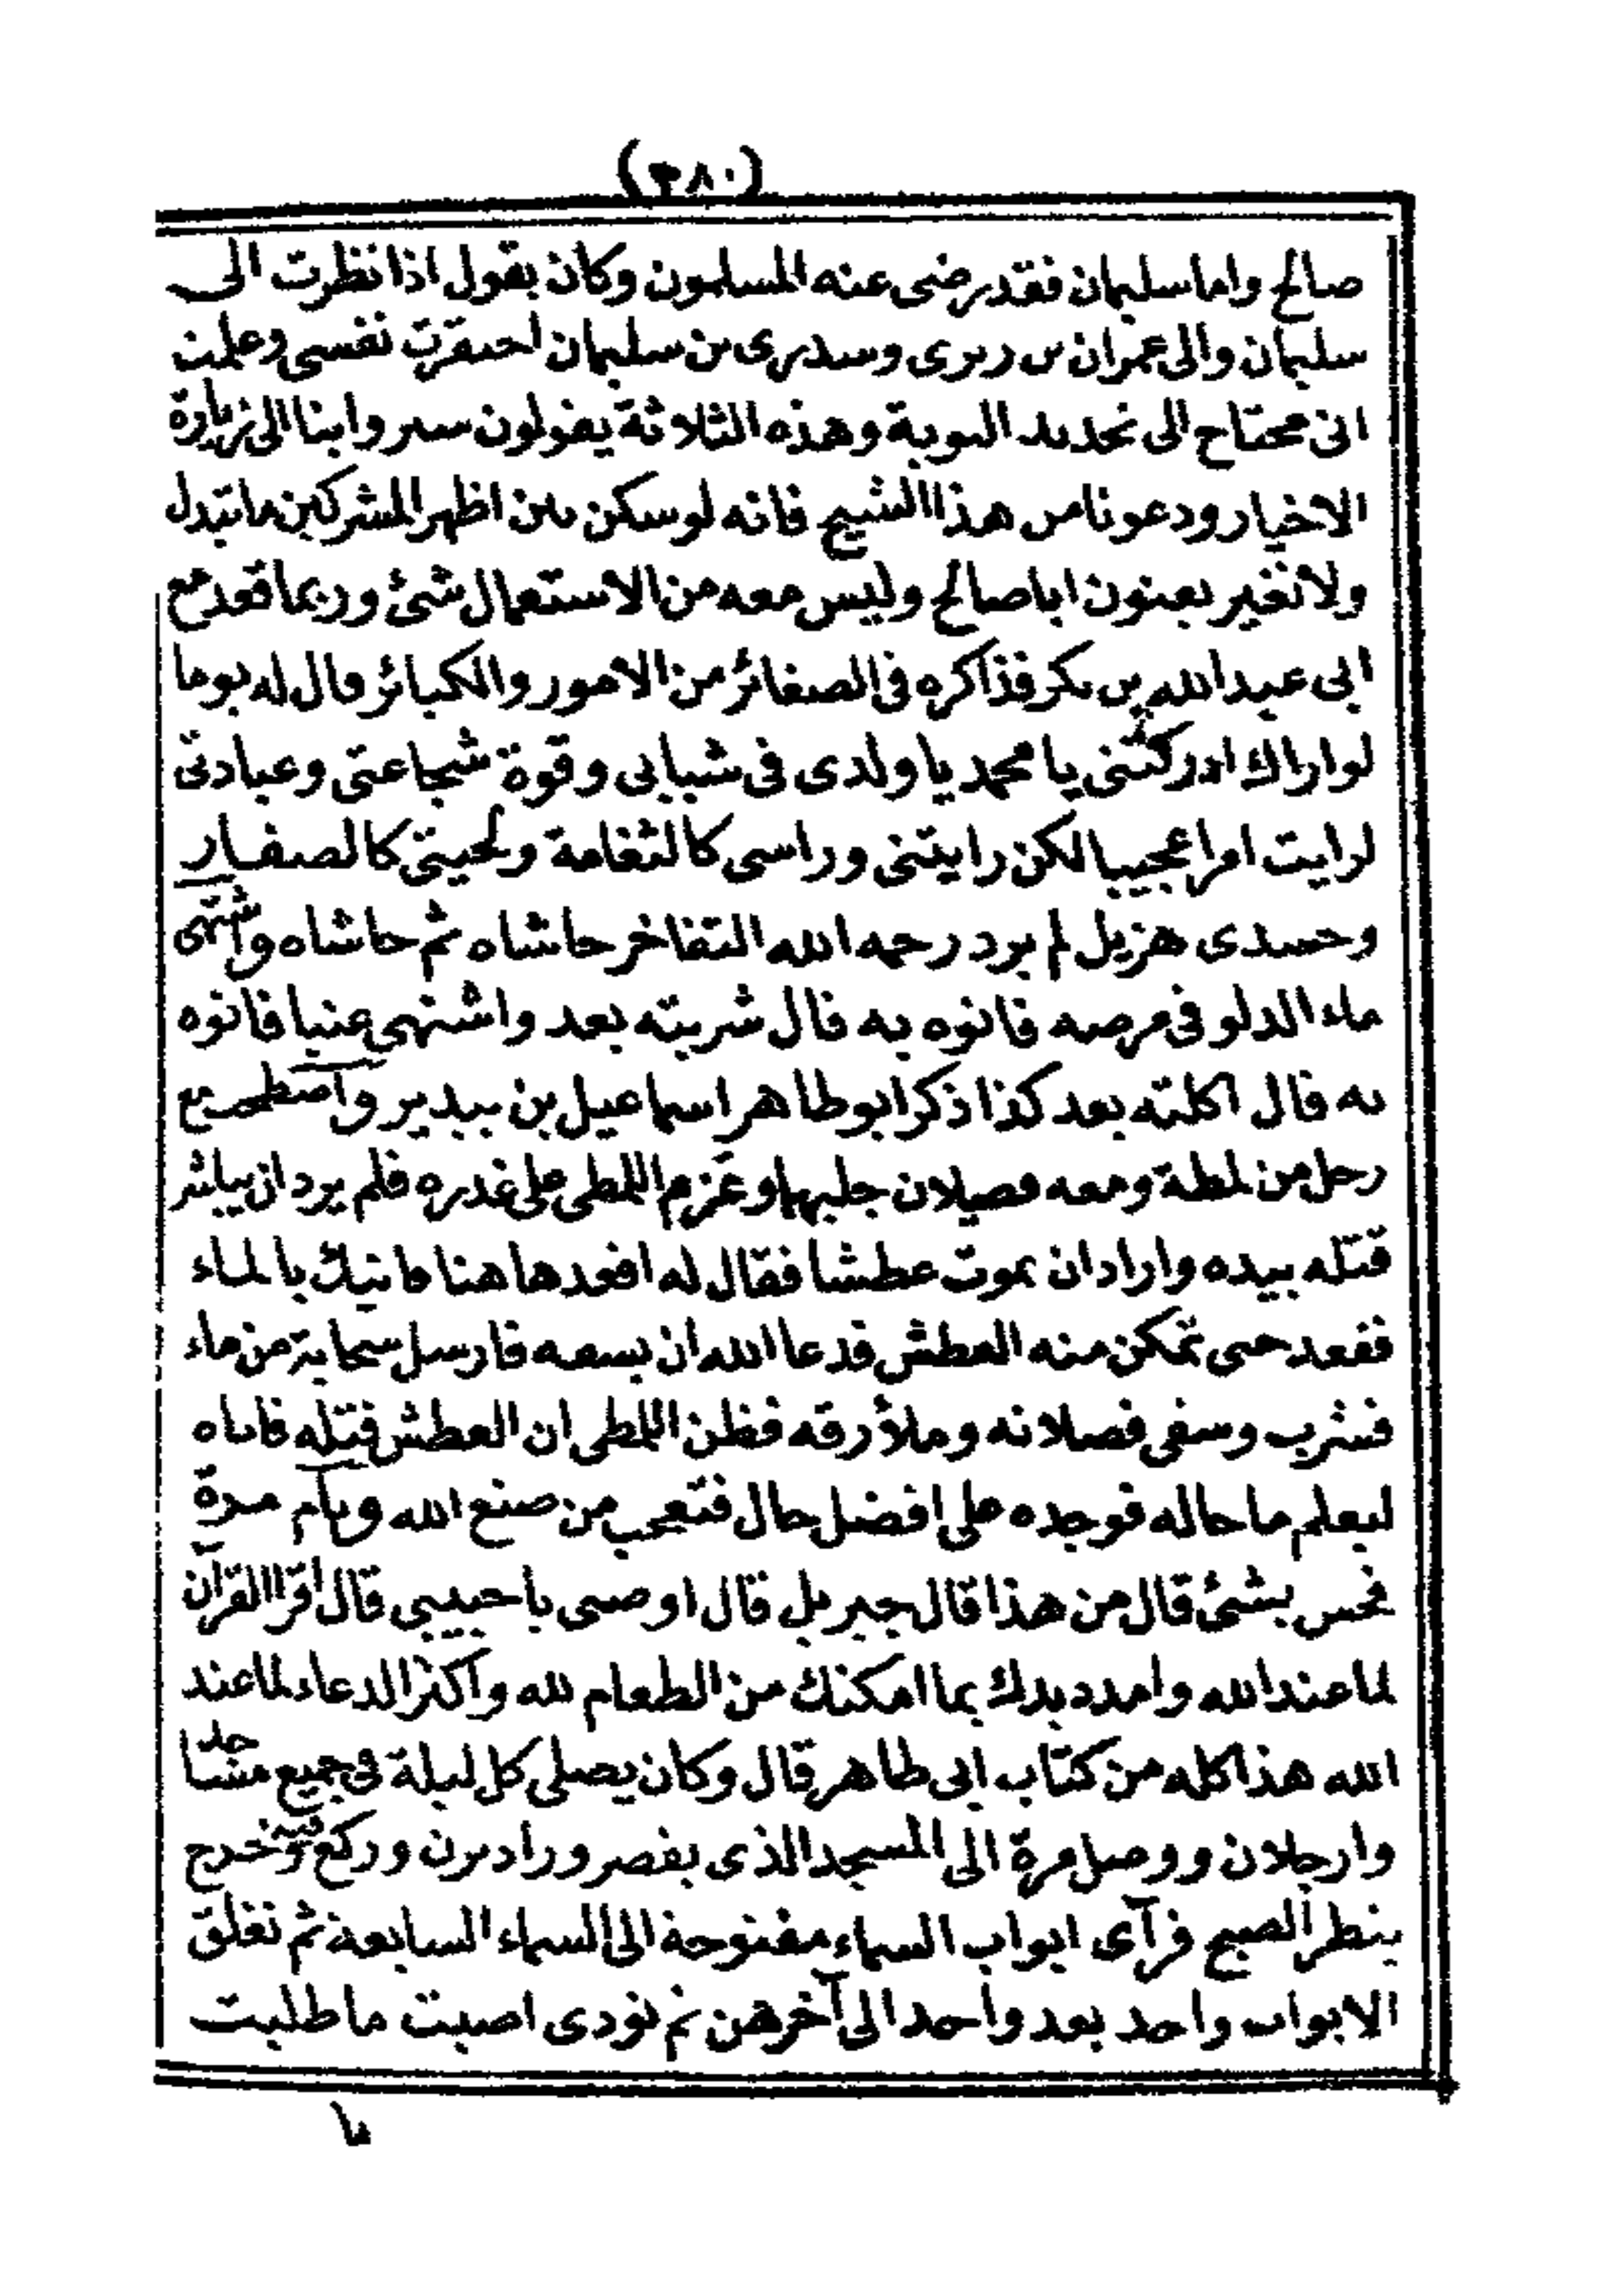 (٣٨٠)
صالح واما سليمان فقد رضى عنه المسلمون وكان يقول اذا نظرت الى
سليمان والى عمران بن زيرى وسدرى بن سليمان احتقرت نفسى وعلمت
انى محتاج الى تجديد التوبة وهذه الثلاثة يقولون سيروا بنا الى زيارة
الاخيار ودعونا من هذا الشيخ فانه لو سكن بين اظهر المشركين ما تبدل
ولا تغير يعنون ابا صالح وليس معه من الاستعمال شئ وربما قعد مع
ابى عبد الله بن بكر فذاكره فى الصغائر من الامور والكبائر قال له يوما
لو اراك ادركتنى يا محمد يا ولدى فى شبابى وقوة شجاعتى وعبادتى
لرايت امرا عجيبا لكن رايتنى وراسى كالثغامة ولحيتى كالصفار
وجسدى هزيل لم يرد رحمه الله التفاخر حاشاه ثم حاشاه واشتهى
ماء الدلو فى مرضه فاتوه به قال شربته بعد واشتهى عنبا فاتوه
به قال اكلته بعد كذا ذكر ابو طاهر اسماعيل بن بيدير واصطحب مع
رجل من لمطة ومعه فصيلان جلبهما وعزم اللمطى على غدره فلم يرد ان يباشر
قتله بيده واراد ان يموت عطشا فقال له اقعد هاهنا فاتيك بالماء
فقعد حتى تمكن منه العطش فدعا الله ان يسعه فارسل سحابة من ماء
فشرب وسقى فصلانه وملأ زقه فظن اللمطى ان العطش قتله فاتاه
ليعلم ما حاله فوجده على افضل حال فتعجب من صنع الله ونام مرة
فحس بشئ قال من هذا قال جبريل قال اوصى يا حبيبى قال اقرا القرآن
لما عند الله وامدد يدك بما امكنك من الطعام لله واكثر الدعاء لما عند
الله هذا كله من كتاب ابى طاهر قال وكان يصلى كل ليلة فى جميع مساجد
وارجلان ووصل مرة الى المسجد الذى بقصر وركع فيه وخرج
ينظر الصبح فرآى ابواب السماء مفتوحة الى السماء السابعة ثم تغلق
الابواب واحد بعد واحد الى آخرهن ثم نودى اصبت ما طلبت
يا